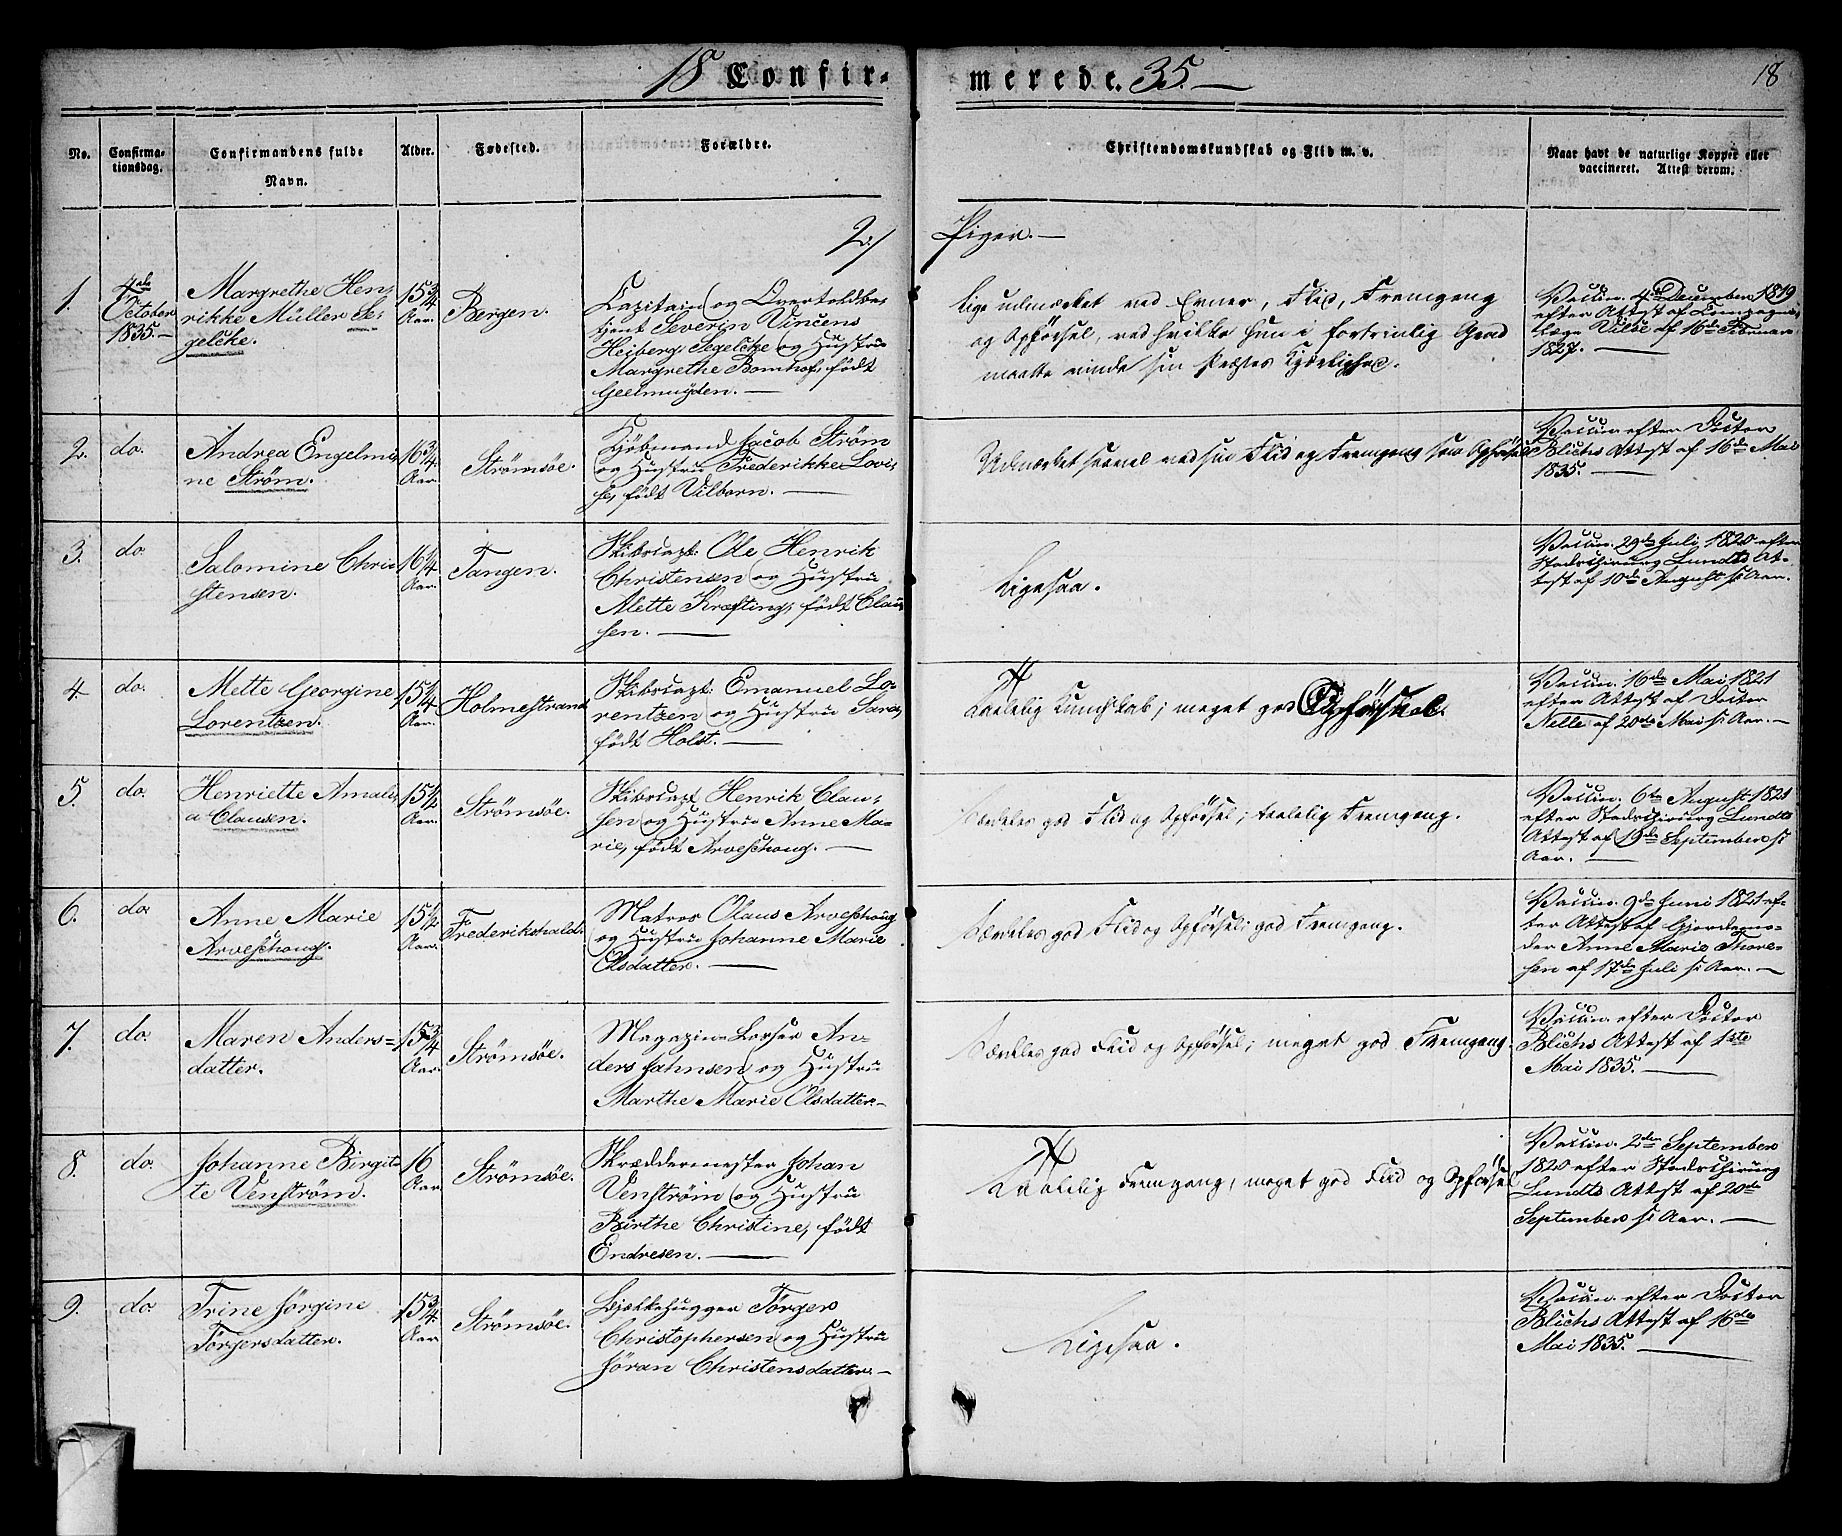 18 Confir-
merede. 35. —
18
No.
Confirma-
tionsdag.
Confirmandens fulde
Navn.
Alder.
Fødested.
Forældre.
Christendomskundskab og Flid m. v.
Naar havt de naturlige Kopper eller
vaccineret. Attest derom.
2./ Piger. —
1.
4de
October
1835. —
Margrethe Hen-
rikke Müller Se-
gelcke.
15 3/4
Aar.
Bergen.
Capitain og Overtoldbe-
tjent Severin Vincens
Heiberg Segelcke og Hustru
Margrethe Bomhof, født
Geelmuyden. —
lige udmærket ved Evner, Flid, Fremgang
og Opførsel, ved hvilke hun i fortrinlig Grad
maatte vinde sin Næstes Kjærlighed.
Vaccin. 4de December 1819
efter Attest af Compagnie-
læge Vilse af 16de Februar
1827. —
2.
do.
Andrea Engelmi-
ne Strøm.
16 3/4
Aar.
Strømsøe.
Kjøbmand Jacob Strøm
og Hustru Frederikke Lovi-
se, født Vilborn. —
Udmærket saavel ved sin Flid og Fremgang som Opførsel
Vaccin. efter Doctor
Blichs Attest af 16de Mai
1835. —
3.
do.
Salomine Chri-
stensen.
16 1/4
Aar.
Tangen.
Skibscapt: Ole Henrik
Christensen og Hustru
Mette Kræfting, født Clau-
sen. —
Ligesaa.
Vaccin. 29de Juli 1820 efter
Stadschirurg Lundts At-
test af 10de August s: Aar.
4.
do.
Mette Georgine
Lorentzen.
15 1/4
Aar.
Holmestrand
Skibscapt: Emanuel Lo-
rentzen og Hustru Sara,
født Holst. —
Taalelig Kundskab; meget god Opførsel.
Vaccin. 16de Mai 1821
efter Attest af Doctor
Nelle af 20de Mai s: Aar. —
5.
do.
Henriette Amali-
a Clausen.
15 1/2
Aar.
Strømsøe.
Skibscapt Henrik Clau-
sen og Hustru Anne Ma-
rie, født Arveschoug. —
Særdeles god Flid og Opførsel; taalelig Fremgang.
Vaccin. 6te August 1821
efter Stadschirurg Lundts
Attest af 19de September s:
Aar. —
6.
do.
Anne Marie
Arveschoug.
15 1/2
Aar.
Frederikshald.
Matros Olaus Arveschoug
og Hustru Johanne Marie
Olsdatter. —
Særdeles god Flid og Opførsel; god Fremgang.
Vaccin. 9de Juni 1821 ef-
ter Attest af Gjordemo-
der Anne Marie Thore-
sen af 17de Juli s: Aar. —
7.
do.
Maren Anders-
datter.
15 3/4
Aar.
Strømsøe.
Magazin An-
ders Jahnsen og Hustru
Marthe Marie Olsdatter. —
Særdeles god Flid og Opførsel; meget god Fremgang.
Vaccin. efter Doctor
Blichs Attest af 1ste
Mai 1835. —
8.
do.
Johanne Birgit-
te Venstrøm.
16
Aar.
Strømsøe.
Skræddermester Johan
Venstrøm og Hustru
Birthe Christine, født
Endresen. —
Taalelig Fremgang, meget god Flid og Opførsel
Vaccin. 2den September
1820 efter Stadschirurg
Lundts Attest af 20de
September s: Aar. —
9.
do
Trine Jørgine
Tørgersdatter.
15 3/4
Aar
Strømsøe.
Bjelkehugger Tørger
Christophersen og Hustru
Jøran Christensdatter. —
Ligesaa.
Vaccin. efter Doctor
Blichs Attest af 16de
Mai 1835. —